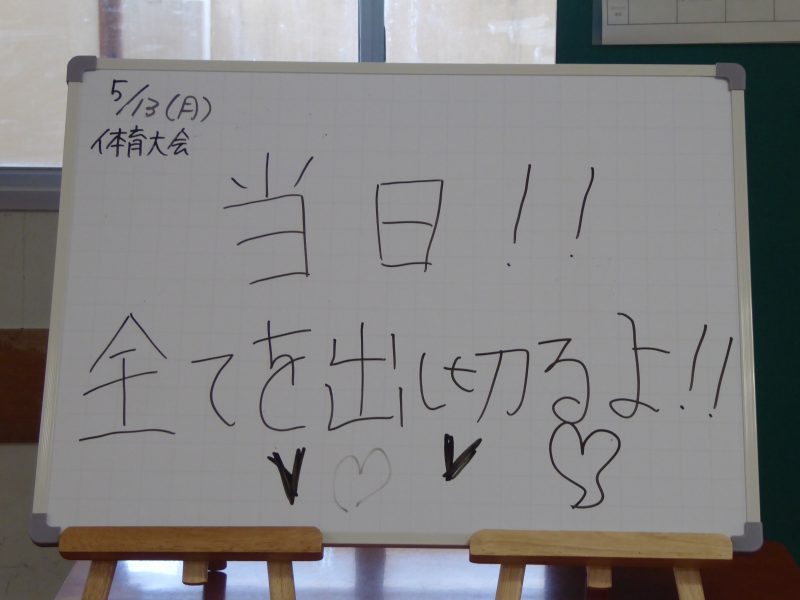 5/13(月)
体育大会
当日!!
全てを出し切るよ!!